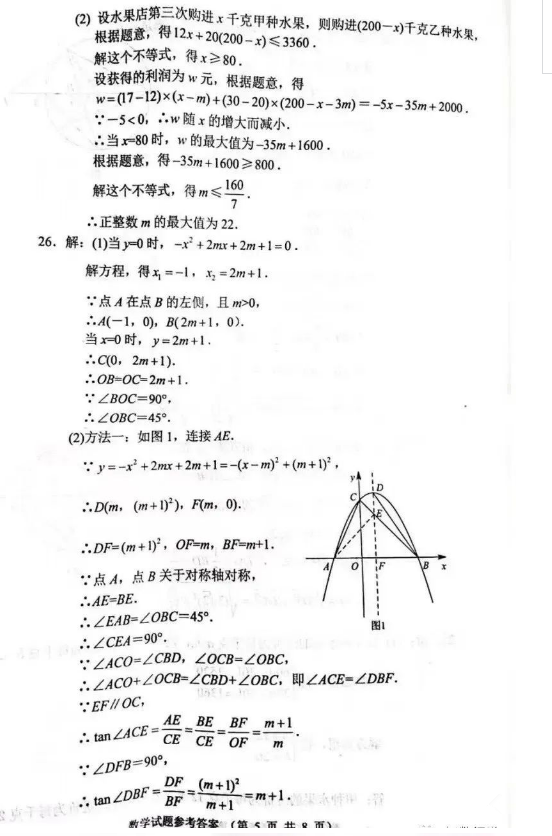 (2) 设水果店第三次购进 x 千克甲种水果，则购进(200－x)千克乙种水果，
根据题意，得12x+20(200－x)≤3360．
解这个不等式，得x≥80．
设获得的利润为 w 元，根据题意，得
w=(17－12)×(x－m)+(30－20)×(200－x－3m)=－5x－35m+2000．
∵－5<0，∴w 随 x 的增大而减小．
∴当 x=80 时，w 的最大值为－35m+1600．
根据题意，得－35m+1600≥800．
解这个不等式，得 m≤160/7．
∴正整数 m 的最大值为 22．
26．解：(1)当 y=0 时，－x²+2mx+2m+1=0．
解方程，得 x₁=－1，x₂=2m+1．
∵点 A 在点 B 的左侧，且 m>0，
∴A(－1，0)，B(2m+1，0)．
当 x=0 时，y=2m+1．
∴C(0，2m+1)．
∴OB=OC=2m+1．
∵∠BOC=90°，
∴∠OBC=45°．
(2)方法一：如图 1，连接 AE．
∵y=－x²+2mx+2m+1=－(x－m)²+(m+1)²，
∴D(m，(m+1)²)，F(m，0)．
∴DF=(m+1)²，OF=m，BF=m+1．
∵点 A，点 B 关于对称轴对称，
∴AE=BE．
∴∠EAB=∠OBC=45°．
∴∠CEA=90°．
∵∠ACO=∠CBD，∠OCB=∠OBC，
∴∠ACO+∠OCB=∠CBD+∠OBC，即∠ACE=∠DBF．
∵EF∥OC，
∴tan∠ACE=AE/CE=BE/CE=BF/OF=(m+1)/m．
∵∠DFB=90°，
∴tan∠DBF=DF/BF=(m+1)²/(m+1)=m+1．
y
D
C
E
A O F B x
图1
数学试题参考答案 (第 5 页 共 8 页)